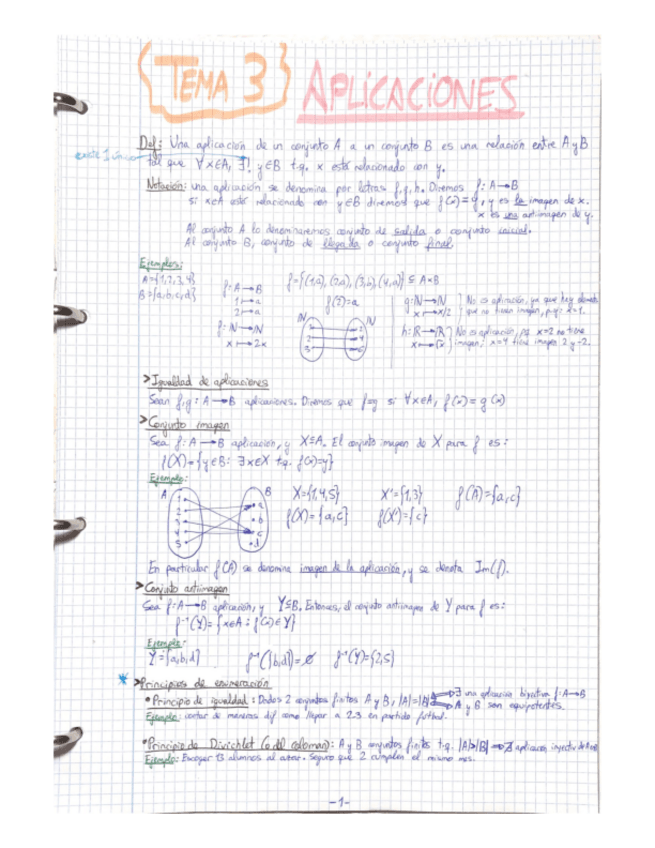 TEMA 3 APLICACIONES
Def: Una aplicación de un conjunto A a un conjunto B es una relación entre A y B
existe 1 único
tal que ∀x∈A, ∃! y∈B t.q. x está relacionado con y.
Notación: una aplicación se denomina por letras f, g, h. Diremos f: A→B
si x∈A está relacionado con y∈B diremos que f(x)=y, y es la imagen de x.
x es una antiimagen de y.
Al conjunto A lo denominaremos conjunto de salida o conjunto inicial.
Al conjunto B, conjunto de llegada o conjunto final.
Ejemplos:
A={1,2,3,4}
B={a,b,c,d}
f: A→B
1↦a
2↦a
f={(1,a), (2,a), (3,b), (4,a)} ⊆ A×B
f(2)=a
f: ℕ→ℕ
x↦2x
ℕ ℕ
1 2
2 4
3 6
g: ℕ→ℕ
x↦x/2
No es aplicación, ya que hay
que no tienen imagen, p.ej: x=1.
h: ℝ→ℝ
x↦√x
No es aplicación, p.q. x=-2 no tiene
imagen; x=4 tiene imagen 2 y -2.
>Igualdad de aplicaciones
Sean f,g: A→B aplicaciones. Diremos que f=g si ∀x∈A, f(x)=g(x)
>Conjunto imagen
Sea f: A→B aplicación, y X⊆A. El conjunto imagen de X para f es:
f(X)={y∈B: ∃x∈X t.q. f(x)=y}
Ejemplo:
A B
1 2 3 4 5
a b c d
X={1,4,5} X'={1,3} f(A)={a,c}
f(X)={a,c} f(X')={c}
En particular f(A) se denomina imagen de la aplicación, y se denota Im(f).
>Conjunto antiimagen
Sea f: A→B aplicación, y Y⊆B. Entonces, el conjunto antiimagen de Y para f es:
f⁻¹(Y)={x∈A : f(x)∈Y}
Ejemplo:
Y={a,b,d} f⁻¹({b,d})=∅ f⁻¹(Y)={2,5}
* >Principios de enumeración
• Principio de igualdad: Dados 2 conjuntos finitos A y B, |A|=|B| ⟺ ∃ una aplicación biyectiva f: A→B
⟹ A y B son equipotentes.
Ejemplo: contar de maneras dif como llegar a 2-3 en partido futbol.
• Principio de Dirichlet (o del palomar): A y B conjuntos finitos t.q. |A|>|B| ⟹ ∄ aplicación inyectiva de A a B
Ejemplo: Escoger 13 alumnos al azar. Seguro que 2 cumplen el mismo mes.
-1-